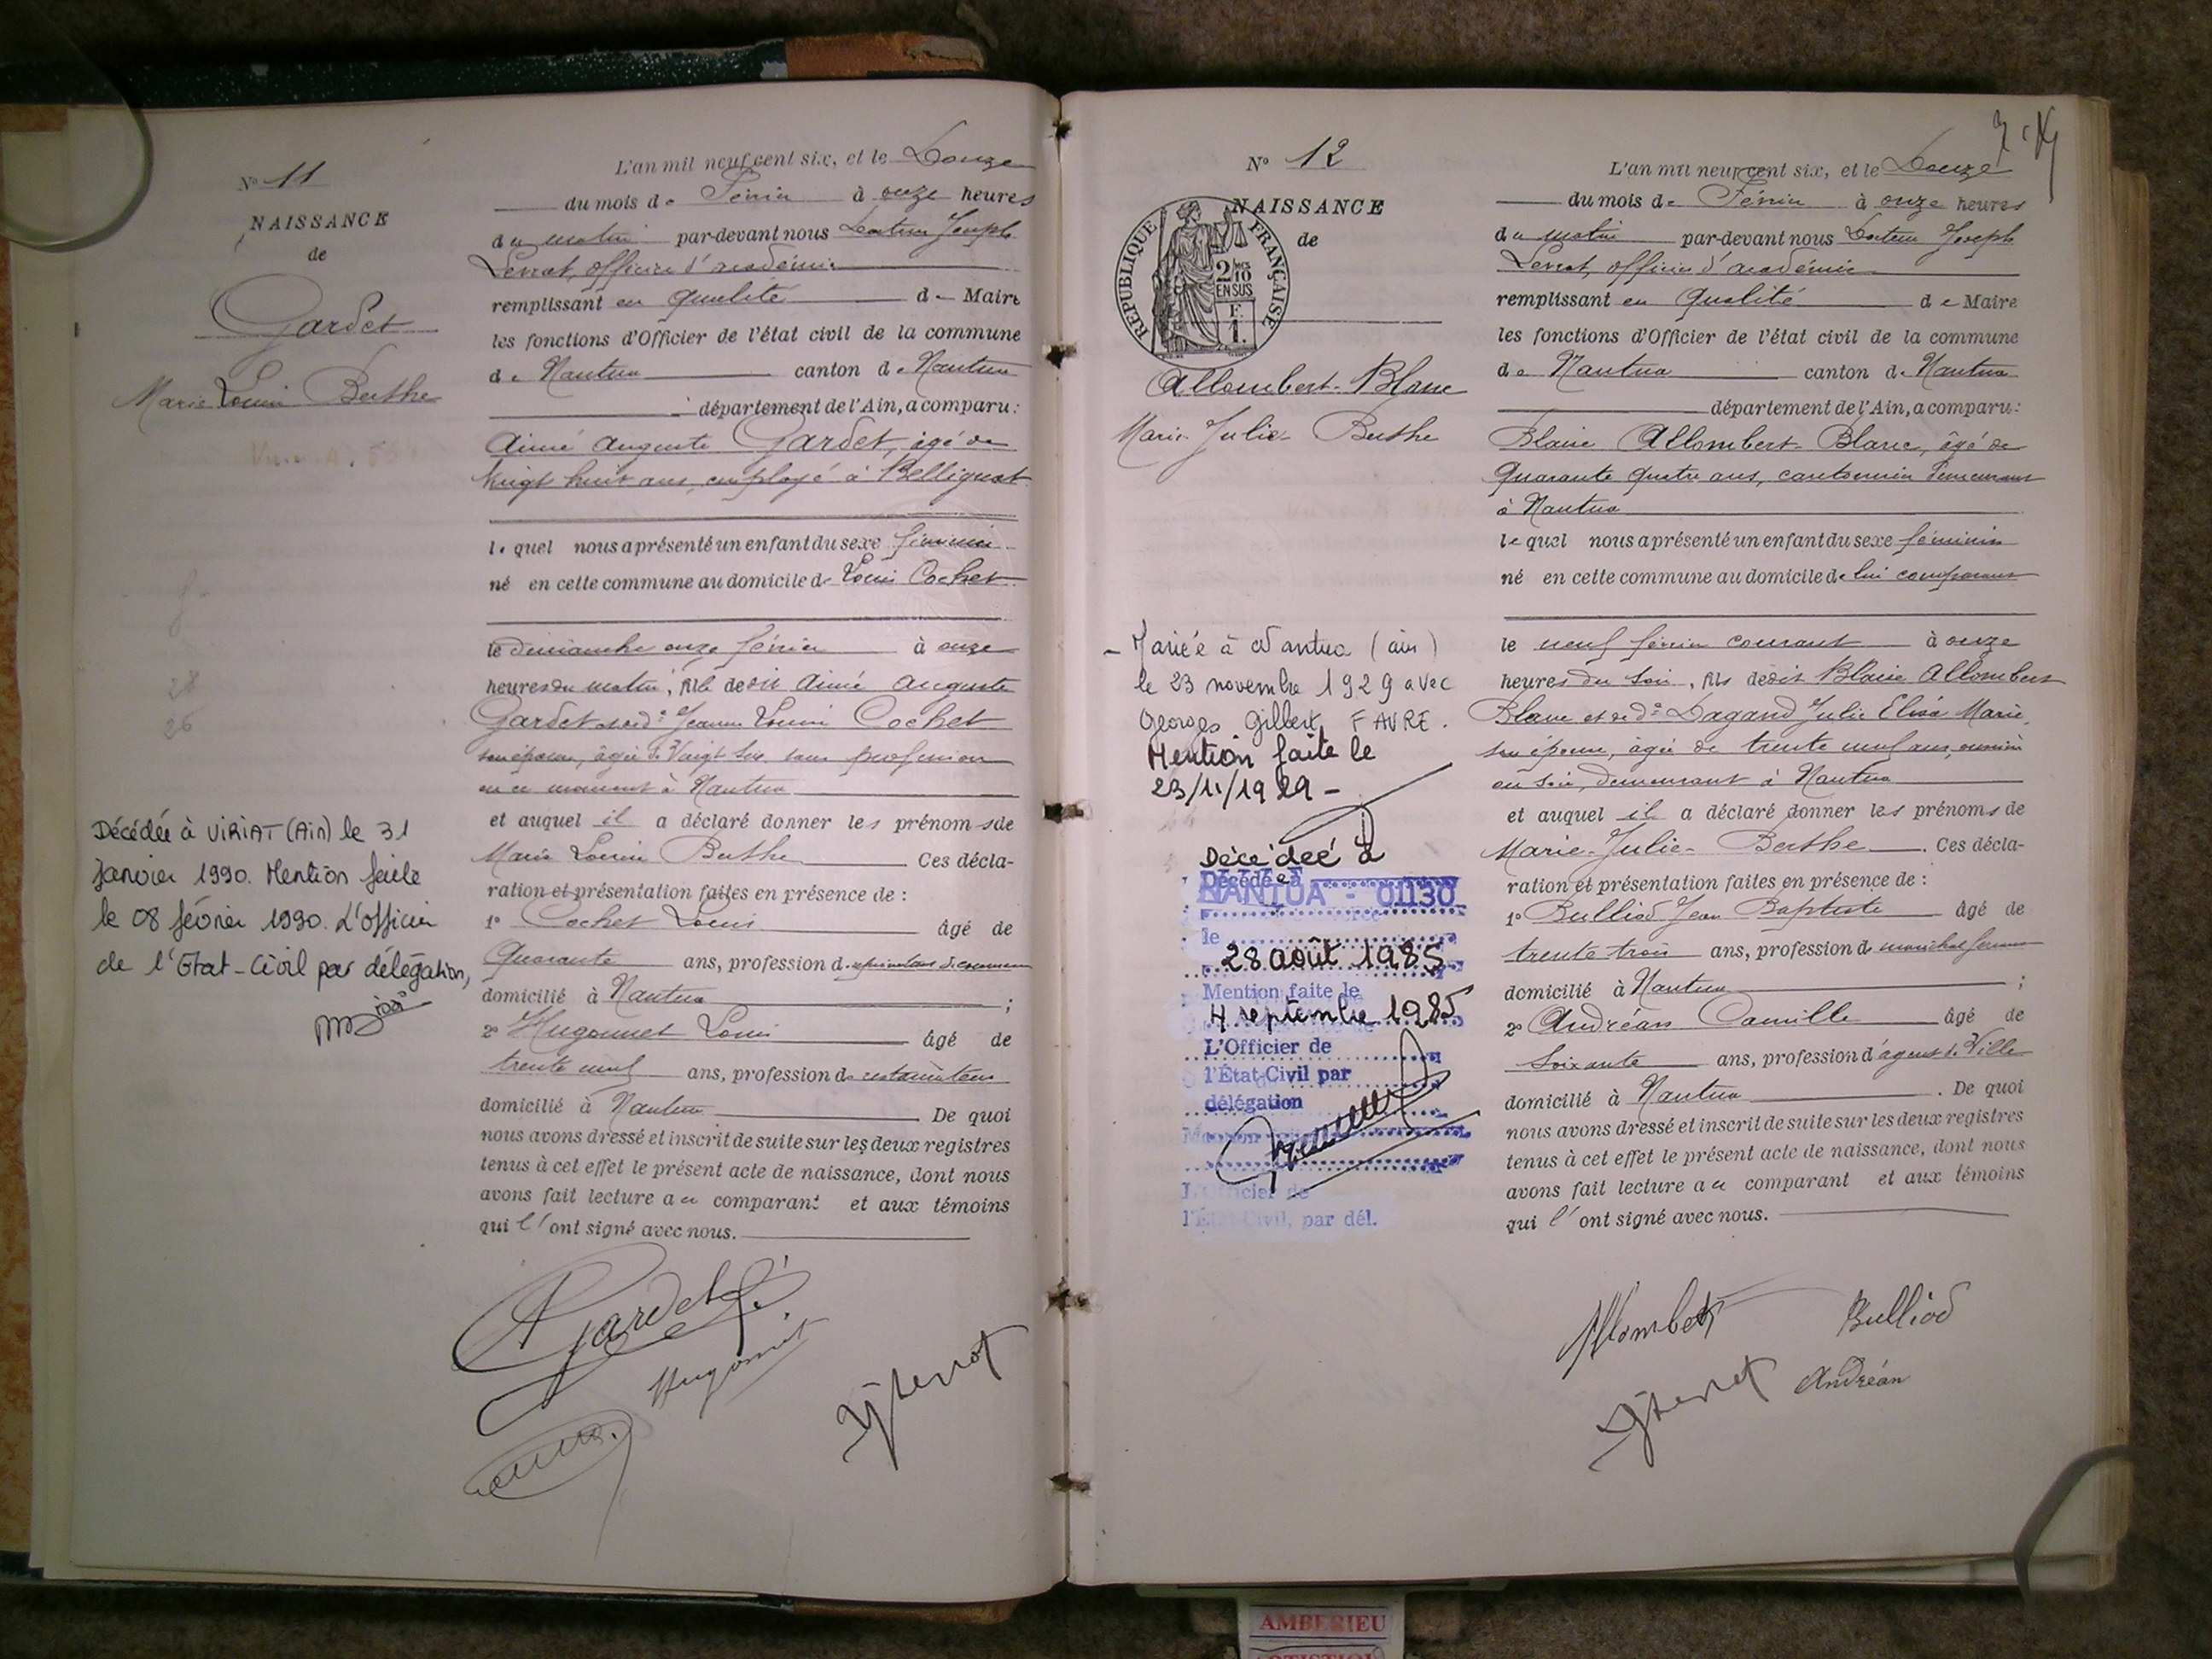 N° 11
NAISSANCE
de
Gardet
Marie Louise Berthe
Décédée à VIRIAT (Ain) le 31
janvier 1990. Mention faite
le 08 février 1990. L'officier
de l'Etat-Civil par délégation,
L'an mil neuf cent six, et le Douze
du mois de Février à onze heures
du matin par-devant nous Docteur Joseph
officier d'académie
remplissant en qualité de Maire
les fonctions d'Officier de l'état civil de la commune
de Nantua canton de Nantua
département de l'Ain, a comparu :
Aimé Auguste Gardet, âgé de
Vingt huit ans, employé à Bellignat
lequel nous a présenté un enfant du sexe féminin
né en cette commune au domicile de Louis Cochet
le Dimanche onze février à onze
heures du matin, fils de dit Aimé Auguste
Gardet et de de Jeanne Louise Cochet
son épouse, âgée de Vingt six, sans profession
en ce moment à Nantua
et auquel il a déclaré donner les prénoms de
Marie Louise Berthe Ces décla-
ration et présentation faites en présence de :
1° Cochet Louis âgé de
Quarante ans, profession de
domicilié à Nantua ;
2° Hugonnet Louis âgé de
trente neuf ans, profession de restaurateur
domicilié à Nantua De quoi
nous avons dressé et inscrit de suite sur les deux registres
tenus à cet effet le présent acte de naissance, dont nous
avons fait lecture au comparant et aux témoins
qui l'ont signé avec nous.
A Gardet
Hugonnet
N° 12
NAISSANCE
de
RÉPUBLIQUE FRANÇAISE
2/10
EN SUS
F.
1.
Allombert-Blanc
Marie-Julie-Berthe
- Mariée à Nantua (ain)
le 23 novembre 1929 avec
Georges Gilbert FAVRE.
Mention faite le
23/11/1929 -
Décédée à
Décédé à
NANTUA - 01130
le
28 août 1985
Mention faite le
4 septembre 1985
L'Officier de
l'État-Civil par
délégation
L'Officier de
l'État-Civil, par dél.
L'an mil neuf cent six, et le Douze
du mois de Février à onze heures
du matin par-devant nous Docteur Joseph
officier d'académie
remplissant en qualité de Maire
les fonctions d'Officier de l'état civil de la commune
de Nantua canton de Nantua
département de l'Ain, a comparu :
Blaise Allombert-Blanc, âgé de
Quarante quatre ans, cantonnier demeurant
à Nantua
lequel nous a présenté un enfant du sexe féminin
né en cette commune au domicile de lui comparant
le neuf février courant à onze
heures du soir, fils de dit Blaise Allombert
Blanc et de de Dagand Julie Elisa Marie
son épouse, âgée de trente neuf ans, ouvrière
en soie, demeurant à Nantua
et auquel il a déclaré donner les prénoms de
Marie-Julie-Berthe. Ces décla-
ration et présentation faites en présence de :
1° Bulliod Jean Baptiste âgé de
trente trois ans, profession de maréchal ferrant
domicilié à Nantua ;
2° Andréan Camille âgé de
Soixante ans, profession d'agent de Ville
domicilié à Nantua. De quoi
nous avons dressé et inscrit de suite sur les deux registres
tenus à cet effet le présent acte de naissance, dont nous
avons fait lecture au comparant et aux témoins
qui l'ont signé avec nous.
Allombert
Bulliod
Andréan
AMBERIEU